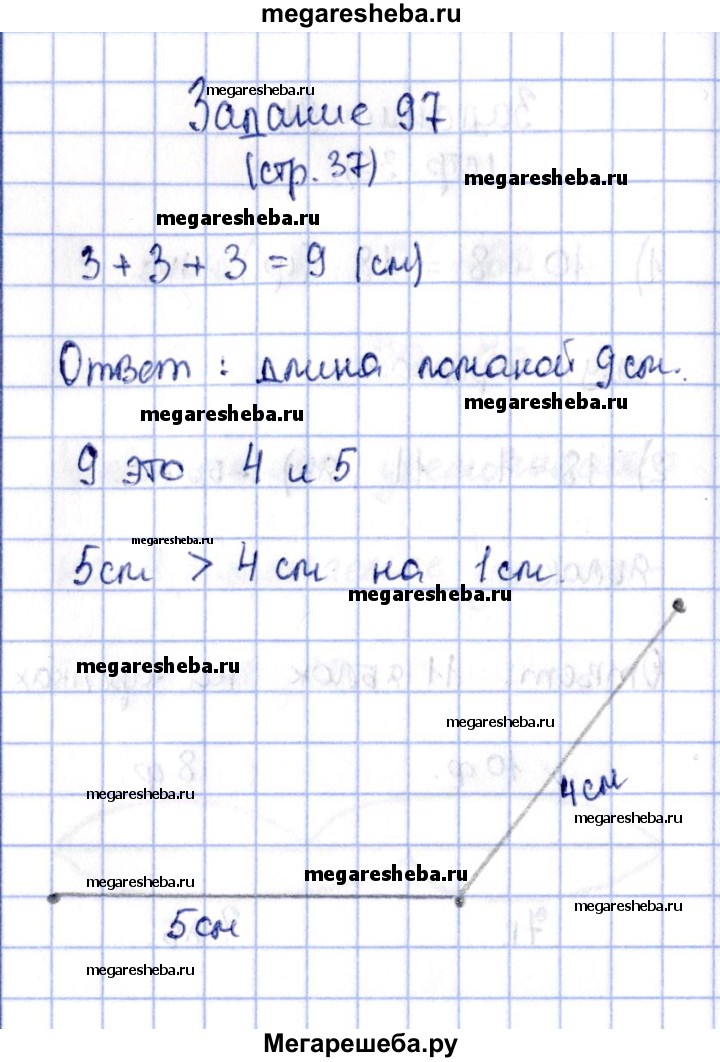 megaresheba.ru
megaresheba.ru
Задание 97
(стр. 37)
megaresheba.ru
megaresheba.ru
3 + 3 + 3 = 9 (см)
Ответ : длина ломаной 9 см.
megaresheba.ru
megaresheba.ru
9 это 4 и 5
megaresheba.ru
5 см > 4 см на 1 см.
megaresheba.ru
megaresheba.ru
megaresheba.ru
4 см
megaresheba.ru
megaresheba.ru
megaresheba.ru
megaresheba.ru
megaresheba.ru
5 см
megaresheba.ru
Мегарешеба.ру